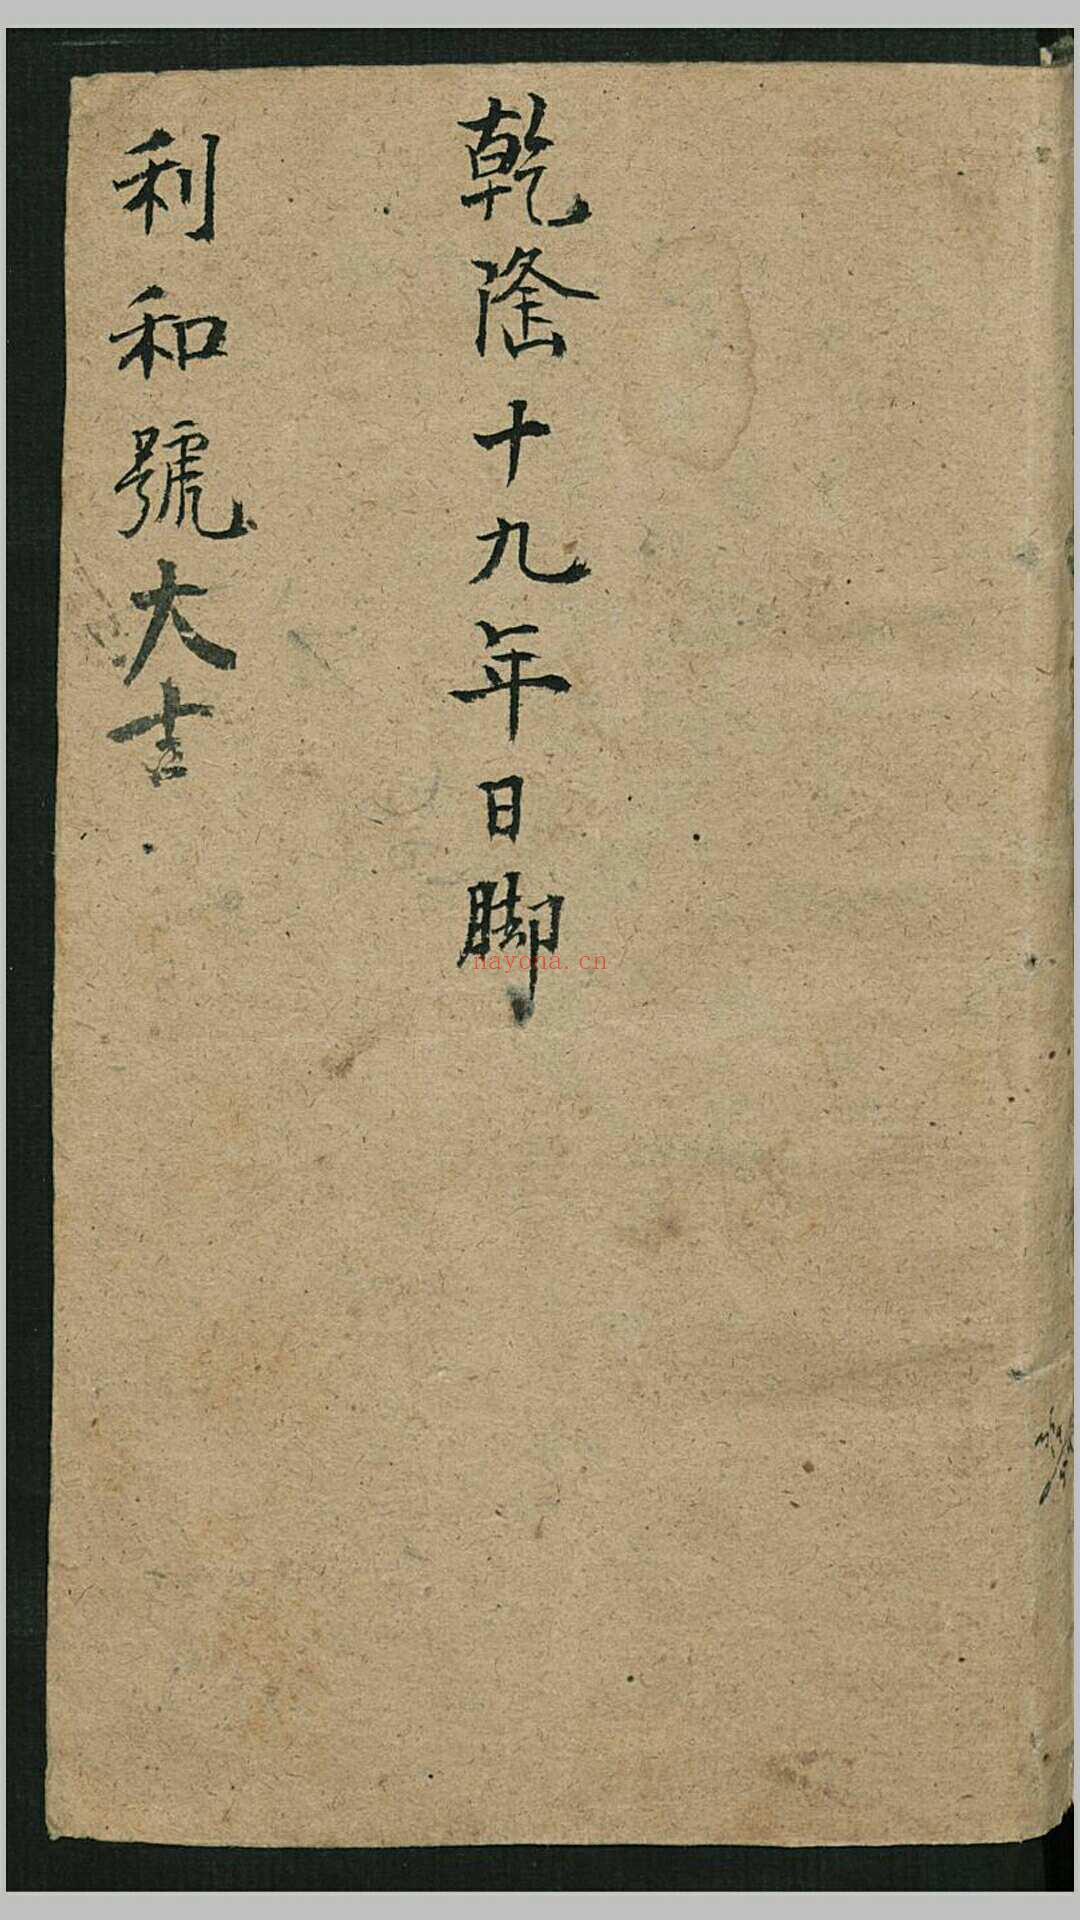 乾隆十九年日脚
利和號大吉
nayona.cn